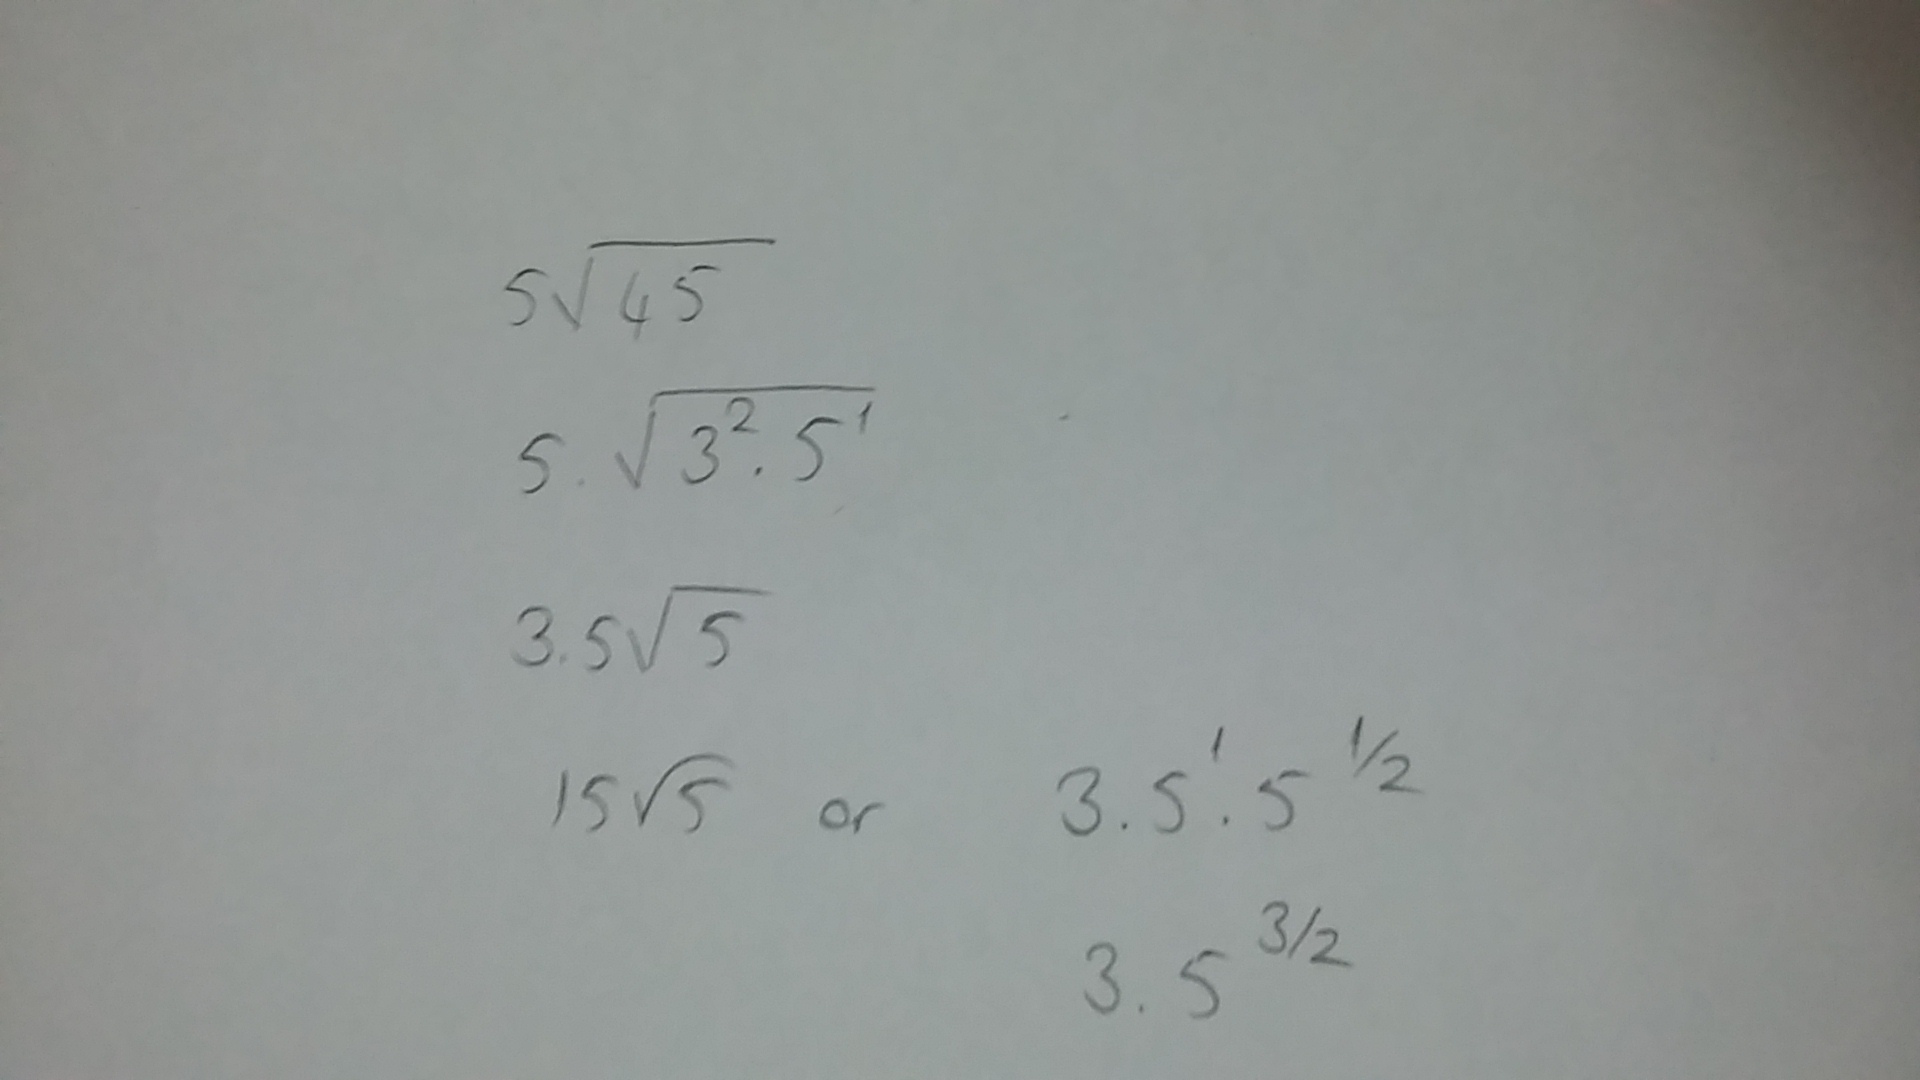 5√45
5.√3².5¹
3.5√5
15√5 or 3.5¹.5^1/2
3.5^3/2